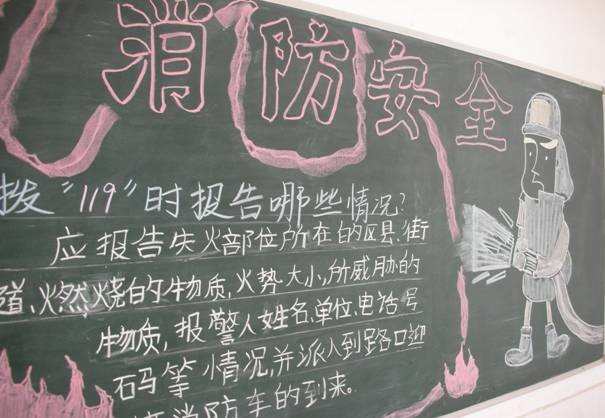 消防安全
拨“119”时报告哪些情况?
应报告失火部位所在的区县、街
道、燃烧的物质,火势大小,所威胁的
物质,报警人姓名、单位、电话号
码等情况,并派人到路口迎
消防车的到来。